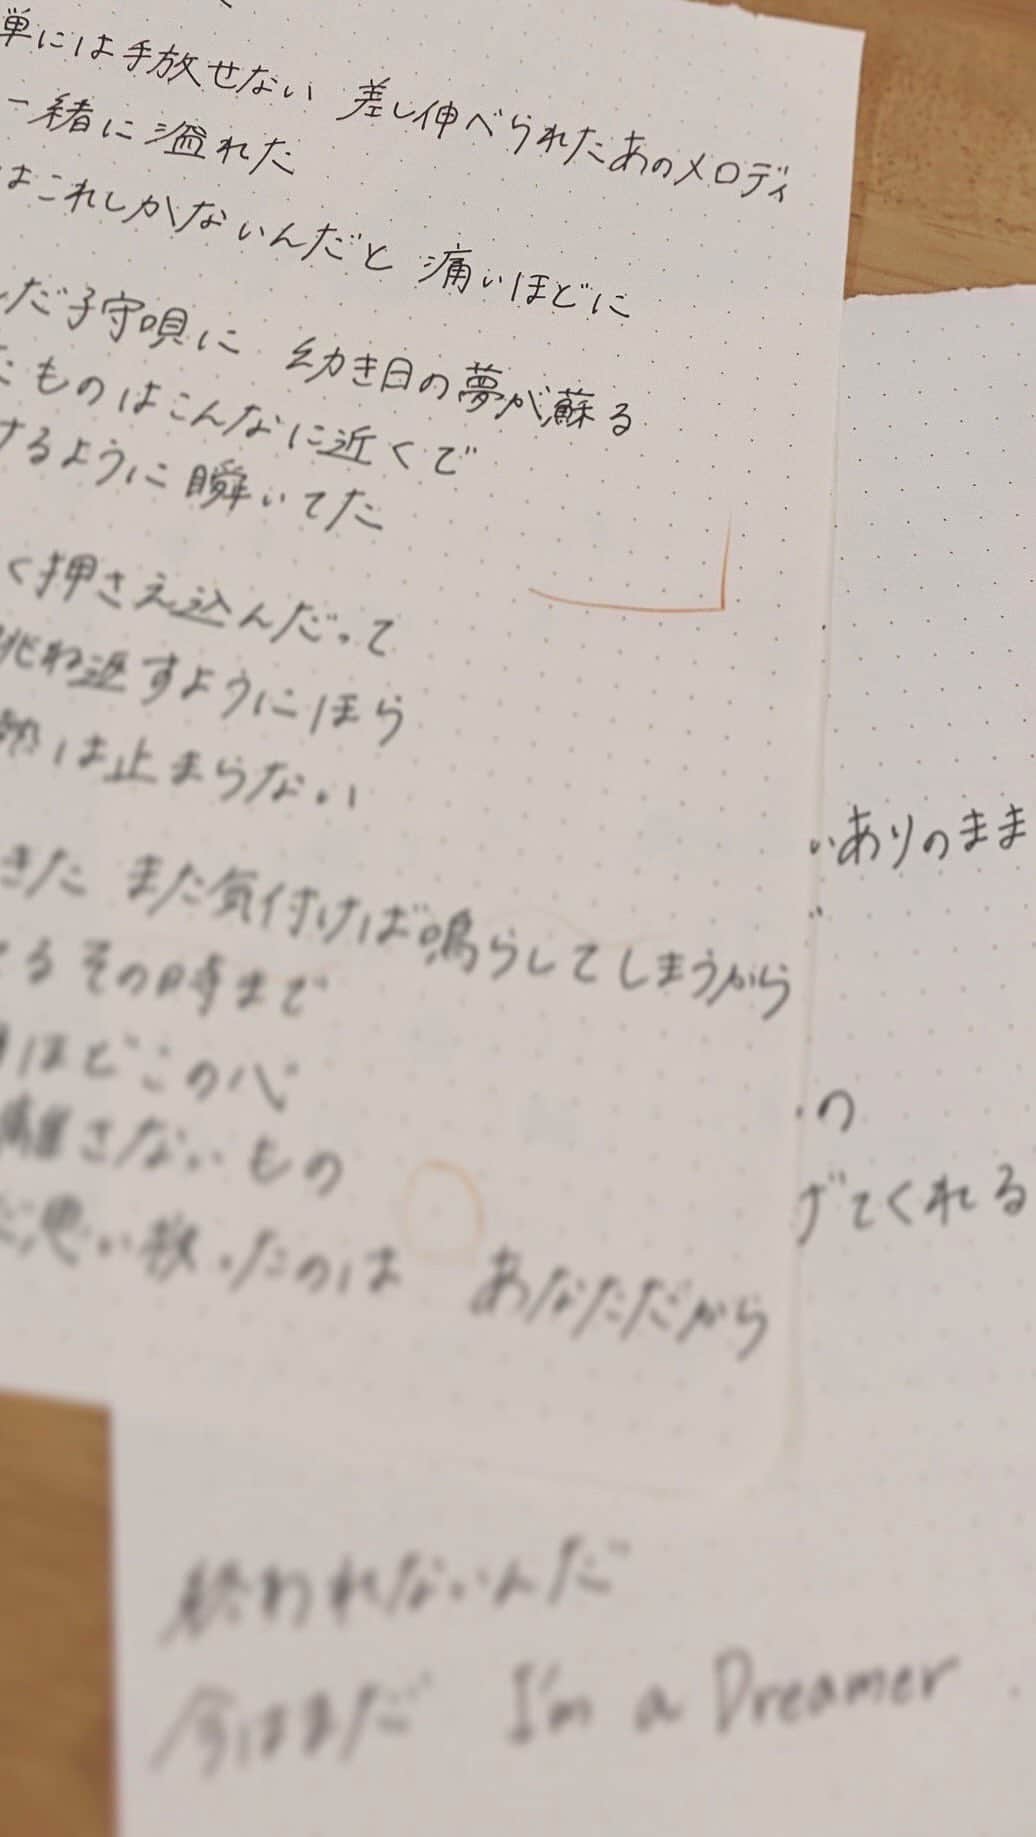 単には手放せない 差し伸べられたあのメロディ
一緒に溢れた
はこれしかないんだと 痛いほどに
んだ子守唄に 幼き日の夢が蘇る
たものはこんなに近くで
けるように瞬いてた
く押さえ込んだって
跳ね返すようにほら
熱は止まらない
きた また気付けば鳴らしてしまうから
るその時まで
はどこのへ
離さないもの
思い歌ったのは あなただから
いありのまま
の
げてくれる
終われないんだ
今はまだ I'm a Dreamer